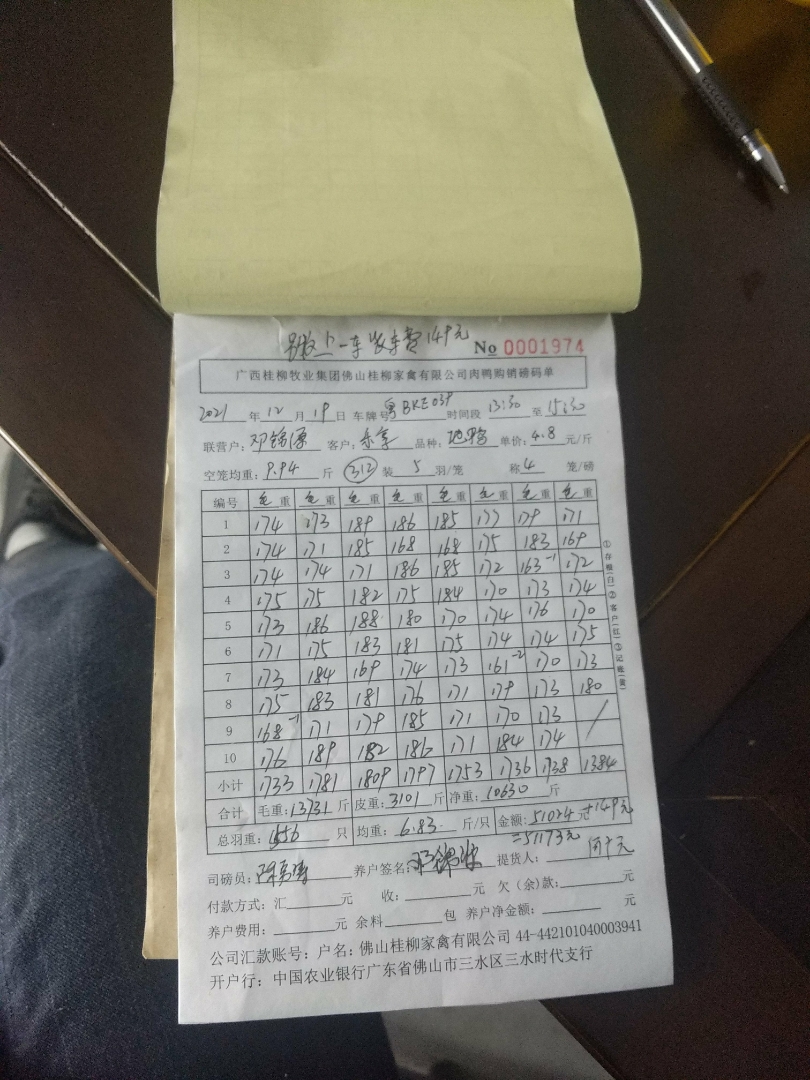 上一车收车费149元
No 0001974
广西桂柳牧业集团佛山桂柳家禽有限公司肉鸭购销磅码单
2021年12月19日 车牌号粤BKE039 时间段13:30至15:30
联营户:邓锦源 客户: 品种: 单价:4.8元/斤
空笼均重:9.94斤 312装5羽/笼 称4笼/磅
编号 毛重 毛重 毛重 毛重 毛重 毛重 毛重 毛重
1 174 173 189 186 185 177 179 171
2 174 171 185 168 168 175 183 169
3 174 174 171 186 185 172 163-1 172
4 175 175 182 175 184 170 173 174
5 173 186 188 180 170 174 176 170
6 171 175 183 181 175 174 174 175
7 173 184 169 174 173 161-2 170 173
8 175 183 181 176 171 179 173 180
9 168-1 171 179 185 171 170 173 /
10 176 189 182 186 171 184 174
小计 1733 1781 1809 1797 1753 1736 1738 1384
合计 毛重:13731斤 皮重:3101斤 净重:10630斤
总羽重:1556只 均重:6.83斤/只 金额:51024元+149元
=51173元
司磅员: 养户签名: 提货人:
付款方式:汇 元 收: 元 欠(余)款: 元
养户费用: 元 余料 包 养户净金额: 元
公司汇款账号:户名:佛山桂柳家禽有限公司 44-442101040003941
开户行:中国农业银行广东省佛山市三水区三水时代支行
①存根(白)②客户(红)③记账(黄)